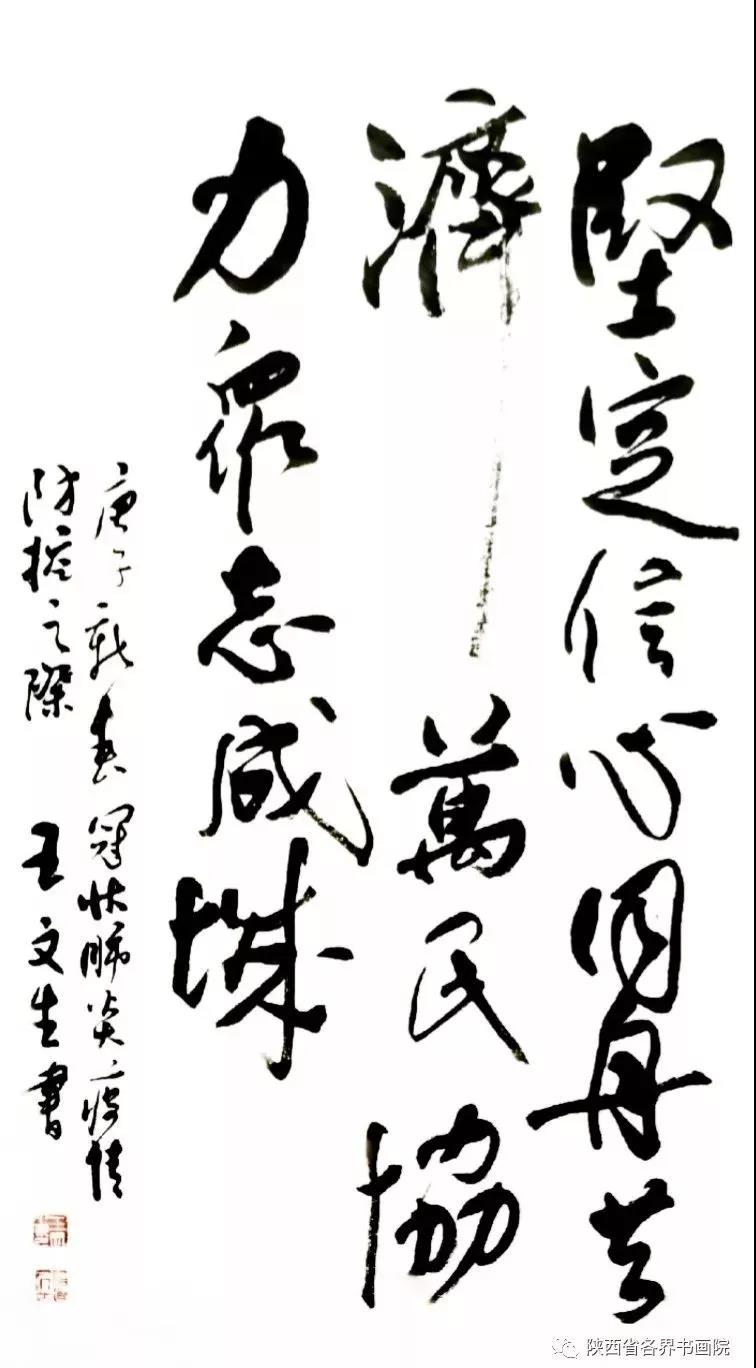 堅定信心同舟共
濟萬民協
力眾志成城
庚子新春冠狀肺炎疫情
防控之際 王文生書
陕西省各界书画院